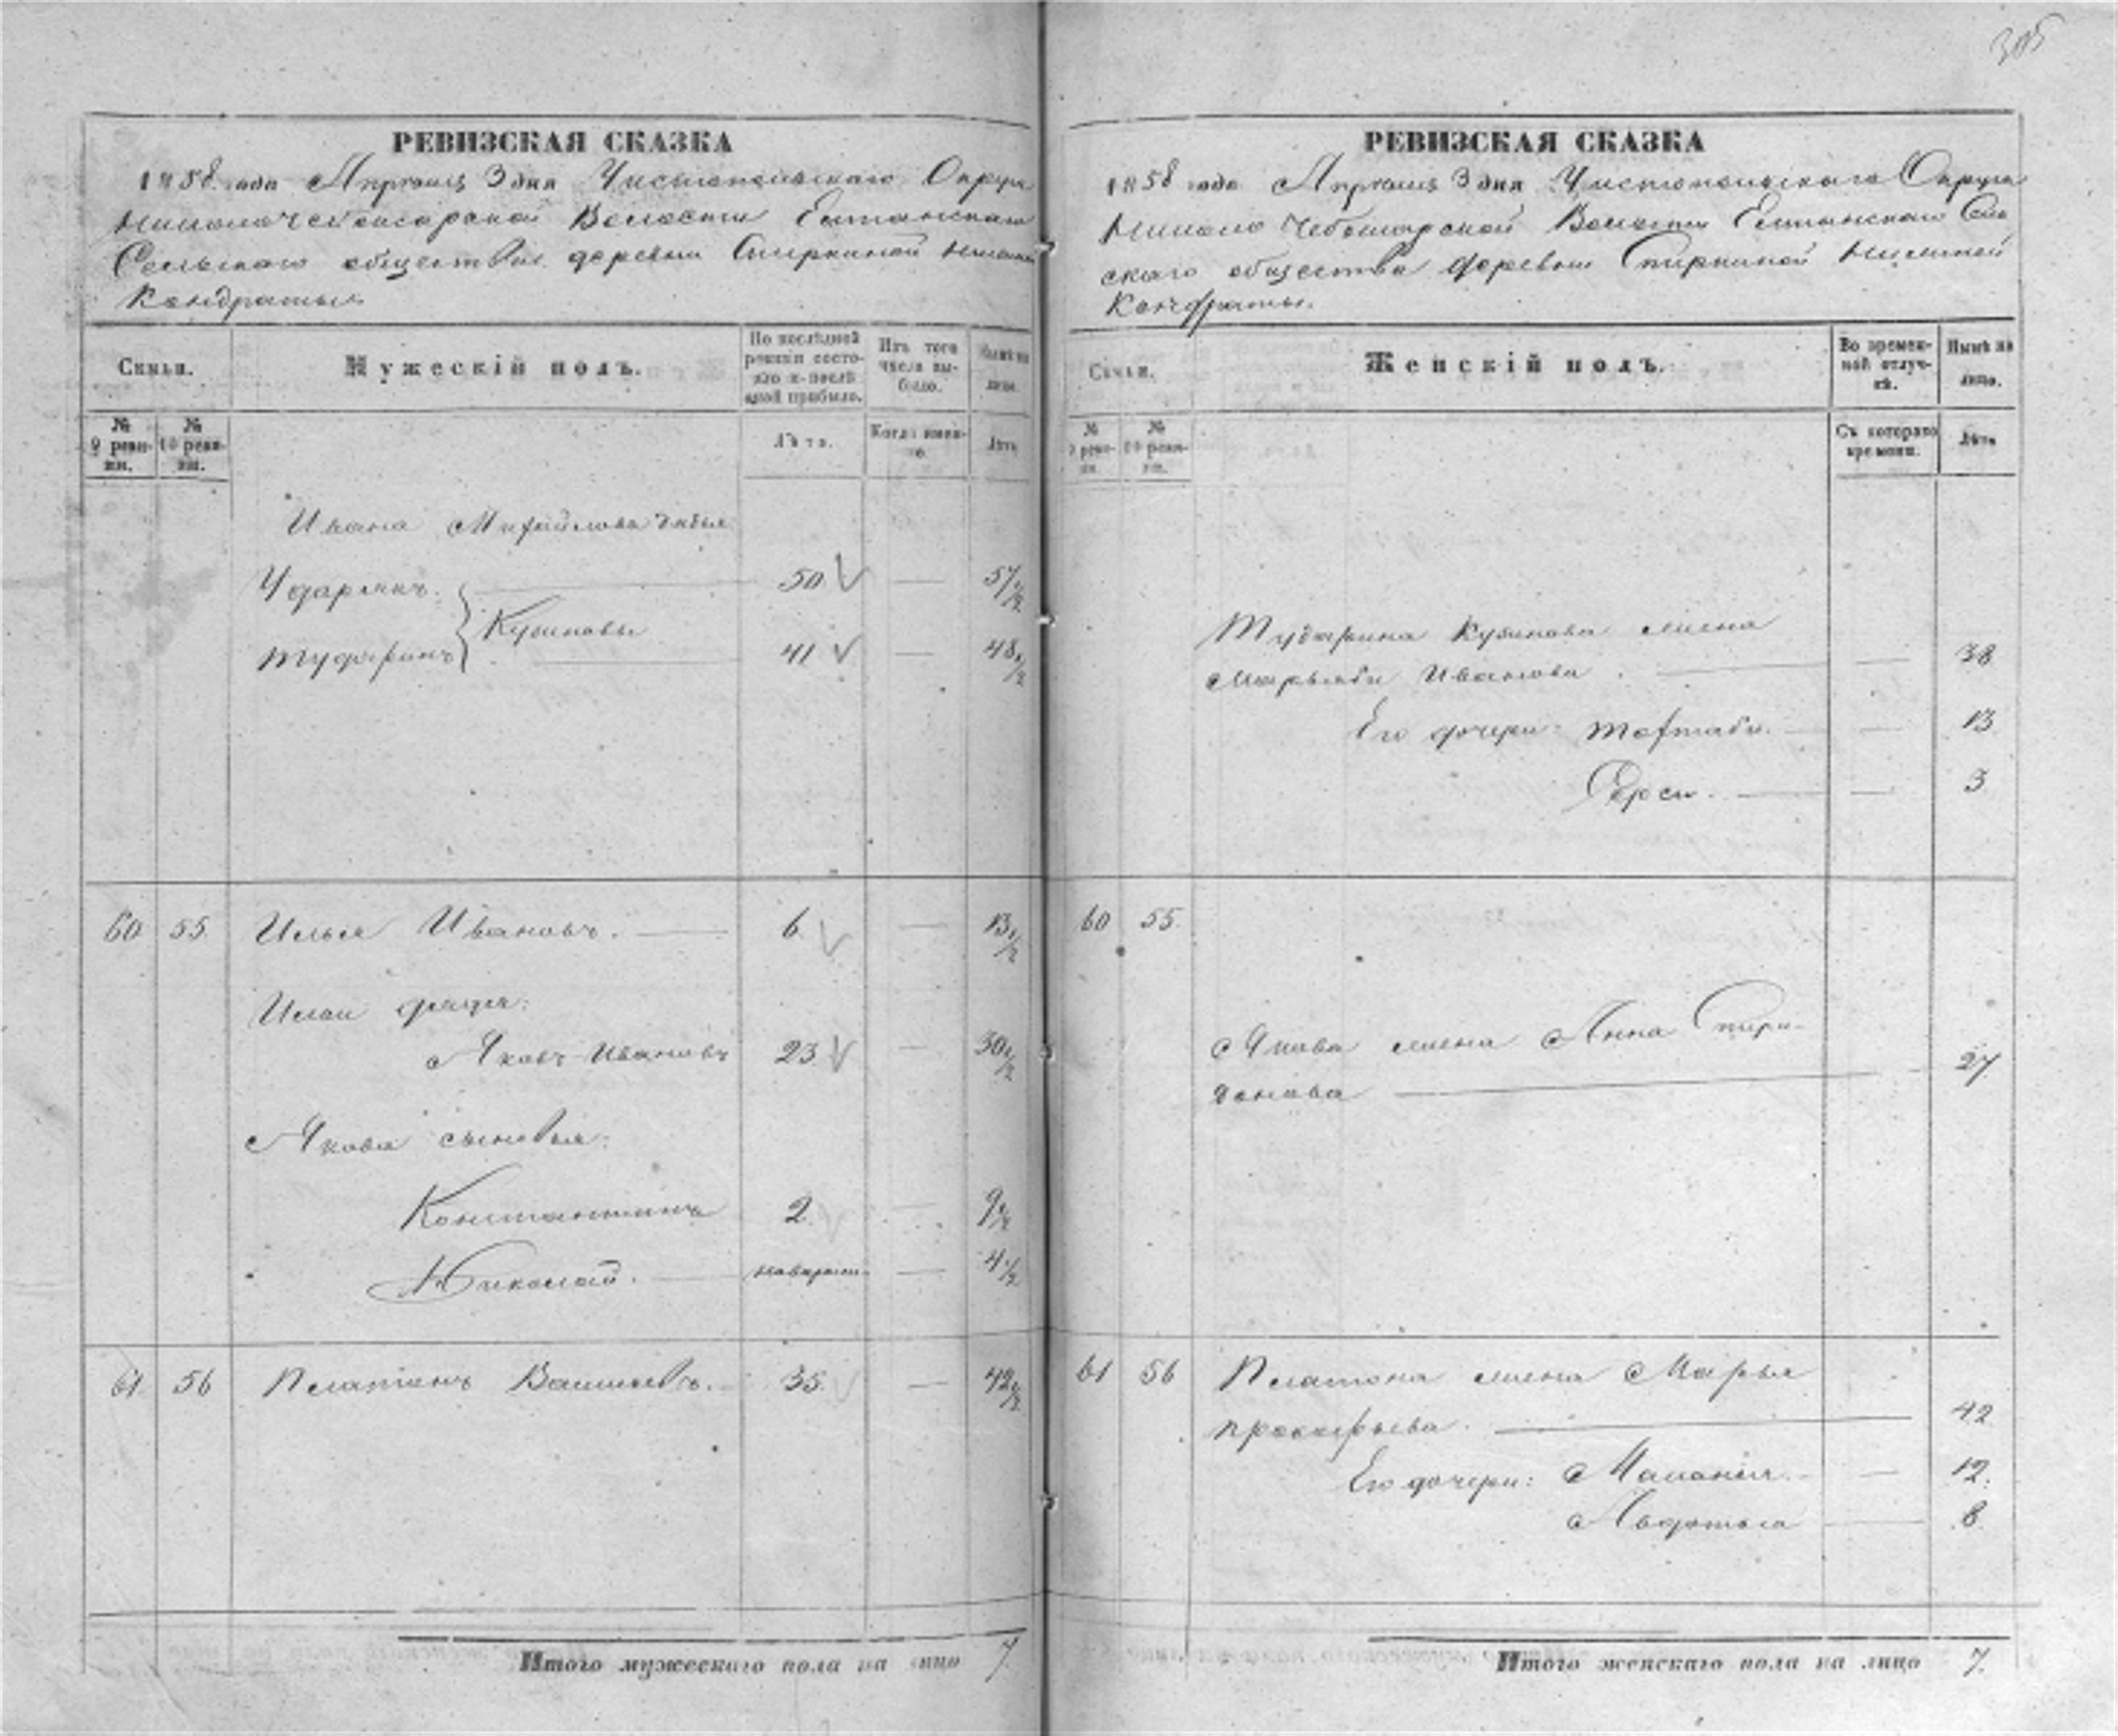 305
РЕВИЗСКАЯ СКАЗКА
1858 года Апрѣля 3 дня Чистопольскаго Округа
Николачебоксарской Волости Елтанскаго
Сельскаго общества деревни Спиркиной
Кондраты
Семьи.
Мужескій полъ.
По послѣдней ревизіи состояло и послѣ оной прибыло.
Изъ того числа выбыло.
Нынѣ на лицо.
№ 9 ревизіи.
№ 10 ревизіи.
Лѣта.
Когда именно.
Лѣта
Ивана Михайлова зятья
Удармянъ. 50 — 57 1/2
Кузиковы
Тударинъ 41 — 48 1/2
60 55 Илья Ивановъ. 6 — 13 1/2
Ильи дядя:
Яковъ Ивановъ 23 — 30 1/2
Якова сыновья:
Константинъ 2 — 9 1/2
Николай. — новорож. — 4 1/2
61 56 Платонъ Васильевъ. 35 — 42 1/2
Итого мужескаго пола на лицо 7
РЕВИЗСКАЯ СКАЗКА
1858 года Апрѣля 3 дня Чистопольскаго Округа
Николо Чебоксарской Волости Елтанскаго Сель
скаго общества деревни Спиркиной Нижней
Кондраты.
Семьи.
Женскій полъ.
Во временной отлучкѣ.
Нынѣ на лицо.
№ 9 ревизіи.
№ 10 ревизіи.
Съ котораго времени.
Лѣта
Тударина Кузикова жена
Марьяби Иванова — 38
Его дочери: — 13
— 3
60 55
Якова жена Анна Спири-
донова — 27
61 56 Платона жена Марья
Прокофьева — 42
Его дочери: Маланья — 12.
Авдотья — 8
Итого женскаго пола на лицо 7.